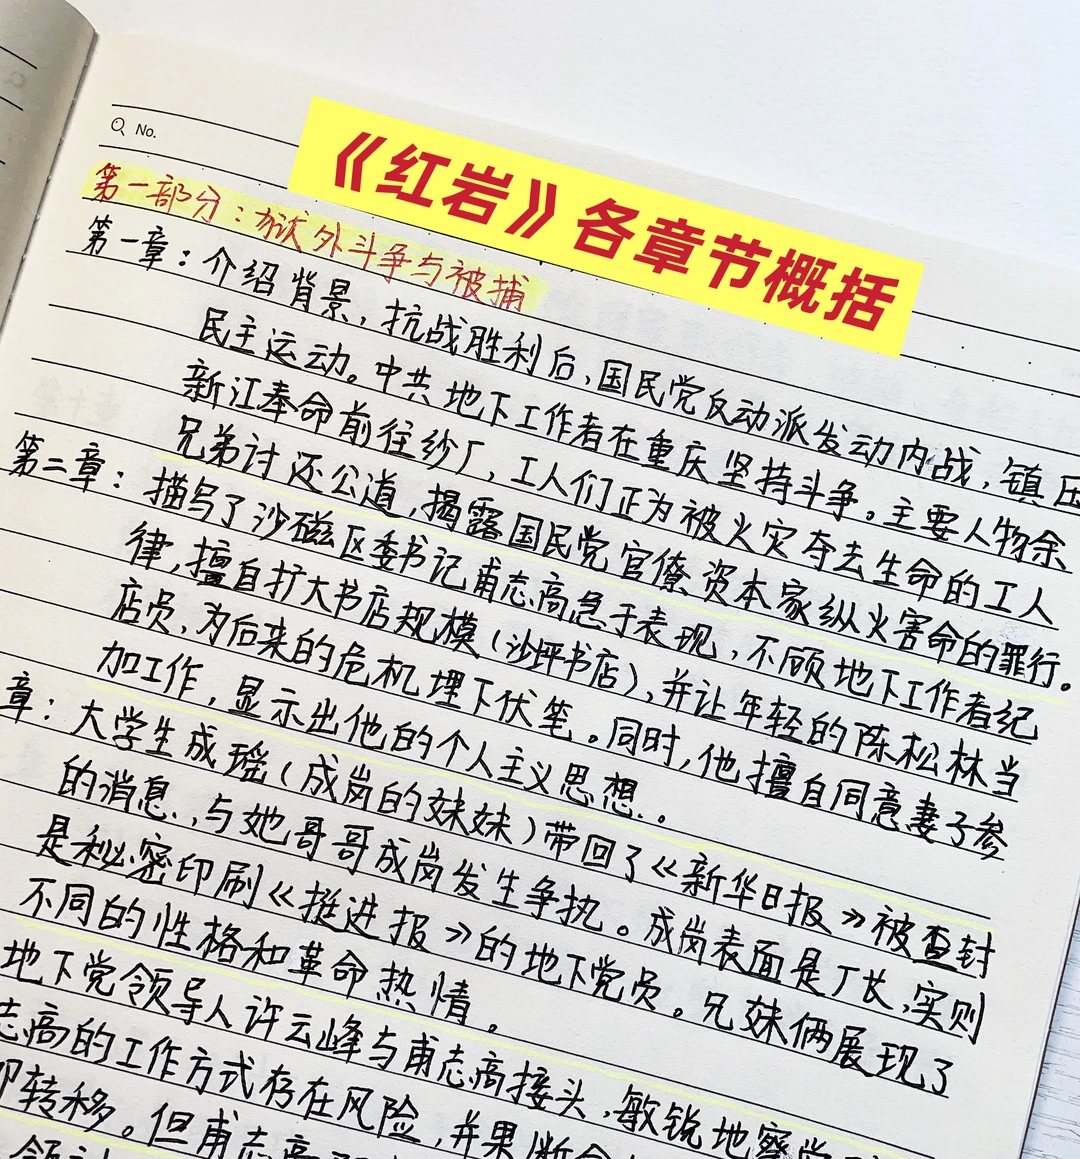 No.
《红岩》各章节概括
第一部分：狱外斗争与被捕
第一章：介绍背景，抗战胜利后，国民党反动派发动内战，镇压
民主运动。中共地下工作者在重庆坚持斗争。主要人物余
新江奉命前往纱厂，工人们正为被火灾夺去生命的工人
兄弟讨还公道，揭露国民党官僚资本家纵火害命的罪行。
第二章：描写了沙磁区委书记甫志高急于表现，不顾地下工作者纪
律，擅自扩大书店规模（沙坪书店），并让年轻的陈松林当
店员，为后来的危机埋下伏笔。同时，他擅自同意妻子参
加工作，显示出他的个人主义思想。
章：大学生成瑶（成岗的妹妹）带回了《新华日报》被查封
的消息，与她哥哥成岗发生争执。成岗表面是厂长，实则
是秘密印刷《挺进报》的地下党员。兄妹俩展现了
不同的性格和革命热情。
地下党领导人许云峰与甫志高接头，敏锐地察觉
志高的工作方式存在风险，并果断命
即转移。但甫志高